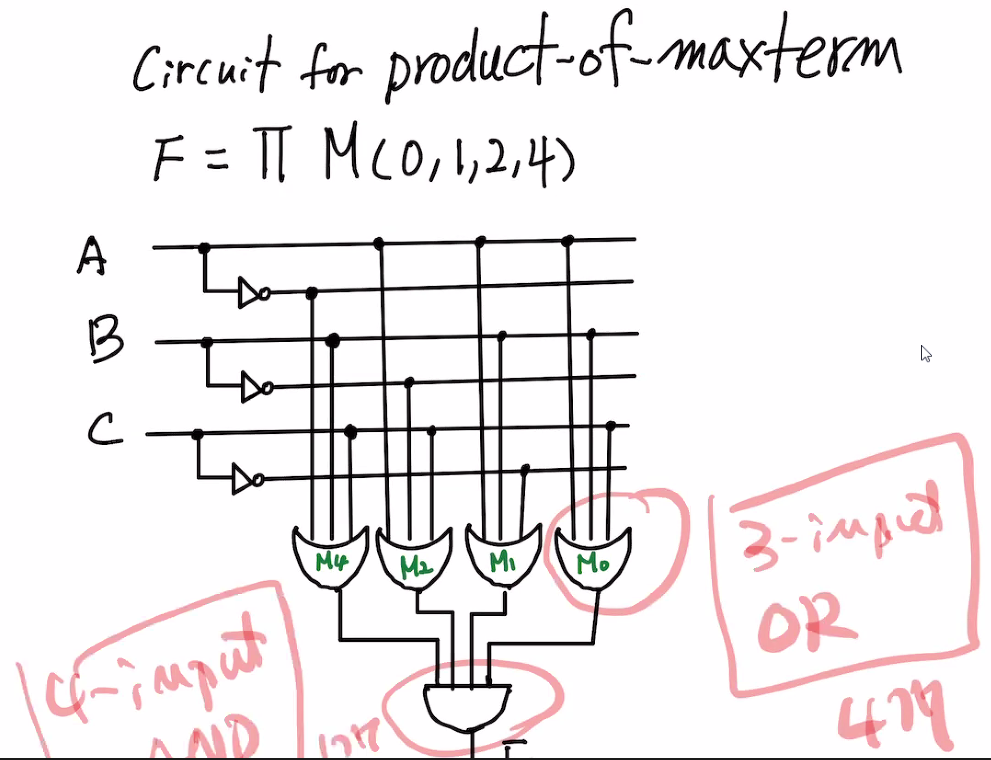 Circuit for product-of-maxterm
F = Π M(0,1,2,4)
A
B
C
M4 M2 M1 M0
3-input
OR
4개
4-input
AND
1개
F